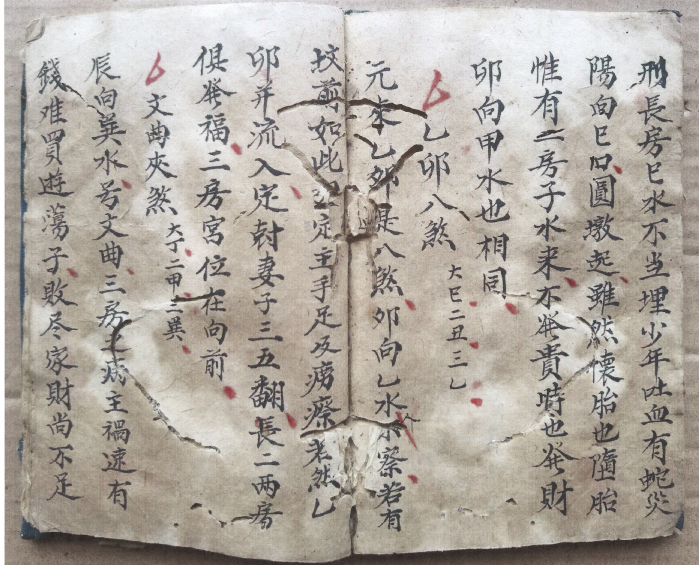 刑長房巳水不当埋少年吐血有蛇災
陽向巳口圓墩起雖然懷胎也墮胎
惟有二房子水来不發貴時也發財
卯向甲水也相同
乙卯八煞 大巳二丑三乙
元来乙卯是八煞卯向乙水 察若有
坟前如此 定主手足及癆瘵老然乙
卯并流入定尅妻子三五翻長二两房
俱發福三房宮位在向前
文曲夾煞 大丁二甲三巽
辰向巽水号文曲三房 主禍遠有
錢难買遊蕩子敗尽家財尚不足